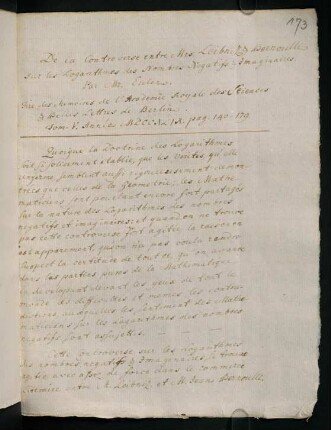 173
De la Controverse entre Mrs. Leibniz & Bernoulli
sur les Logarithmes des Nombres Negatifs & Imaginaires.
Par M. Euler.
Des Memoires de l'Academie Royale des Sciences
& Belles Lettres de Berlin.
Tom V. Année MDCCXLIX. pag. 140-179
Quoique la Doctrine des Logarithmes
soit si solidement établie, que les verités qu'elle
renferme semblent aussi rigoureusement demon-
trées que celles de la Geometrie; les Mathe-
maticiens sont pourtant encore fort partagés
sur la nature des Logarithmes des nombres
negatifs et imaginaires; et quand on ne trouve
pas cette controverse fort agitée, la raison en
est apparemment qu'on n'a pas voulu rendre
suspect la certitude de tout ce qu'on avance
dans les parties pures de la Mathematique,
en developant devant les yeux de tout le
monde les difficultés et memes les contra-
dictions, auxquelles les sentimens des Mathe-
maticiens sur les Logarithmes des nombres
negatifs sont assujettis.
Cette controverse sur les Logarithmes
des nombres negatifs & imaginaires se trouve
agitée avec assez de force dans le Commerce
litteraire entre M. Leibniz et M. Jean Bernoulli.